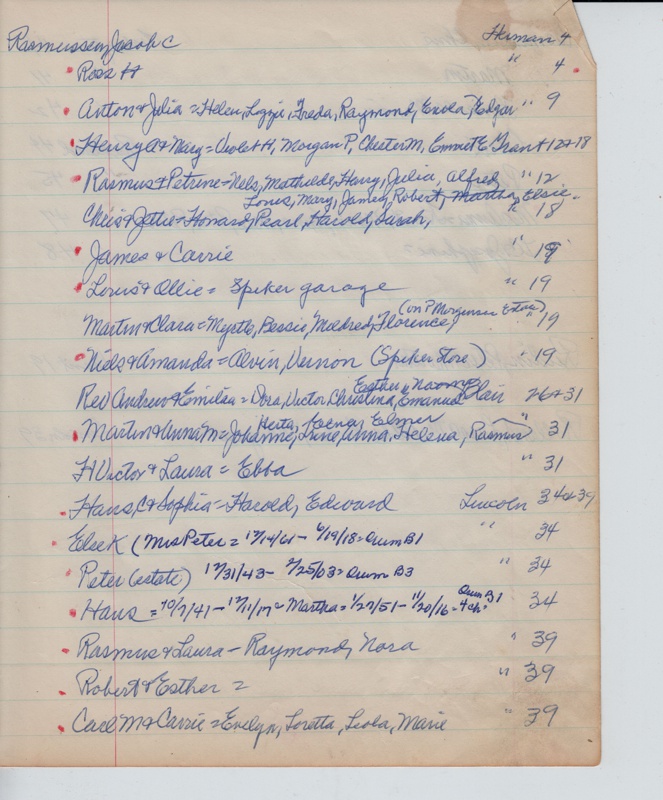 Rasmussen, Jacob C Herman 4
Rosa H " 4
Anton & Julia = Helen, Lizzie, Freda, Raymond, Edgar " 9
Henry A & Mary = Violet H, Morgan P, Chester M, Emmit E Grant 12 & 18
Rasmus & Petrine = Nels, Mathilda, Harry, Julia, Alfred " 12
Louis, Mary, James, Robert, Martha, Elsie
Chris & Jattie = Howard, Pearl, Harold, Sarah, " 18
James & Carrie " 19
Louis & Ollie = Spiker garage " 19
(on P Morgensen Estate)
Martin & Clara = Myrtle, Bessie, Mildred, Florence, " 19
Niels & Amanda = Alvin, Vernon (Spiker Store) " 19
Esther Naomi
Rev Andrew & Emilau = Dora, Victor, Christina, Emanuel Blair 26 & 31
Herta, Elmer
Martin & Anna M = Johanne, Irine, Anna, Helena, Rasmus " 31
H Victor & Laura = Ebba " 31
Hans C & Sophia = Harold, Edward Lincoln 34 & 39
Else K (Mrs Peter = 12/14/61 - 6/19/18 = Orum B1 " 34
Peter (estate) 12/31/43 - 2/25/03 = Orum B3 " 34
Orum B1
Hans = 10/7/41 - 12/11/17 = Martha = 1/27/51 - 11/20/16 = 4 ch. 34
Rasmus & Laura - Raymond, Nora " 39
Robert & Esther = " 39
Carl M & Carrie = Evelyn, Loretta, Leola, Marie " 39